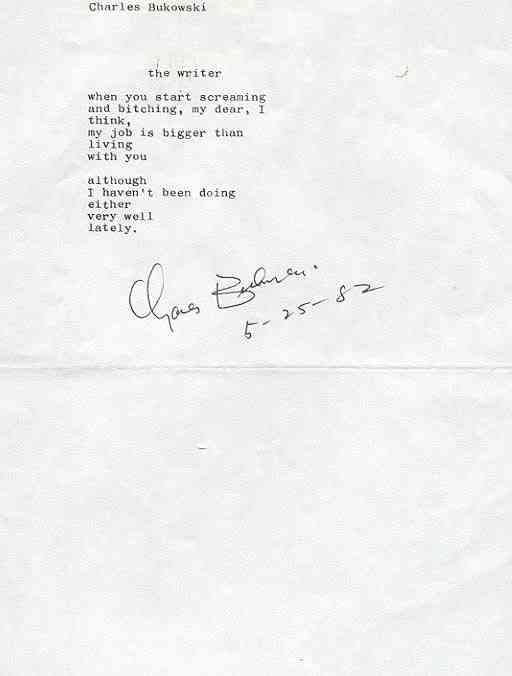 Charles Bukowski
the writer
when you start screaming
and bitching, my dear, I
think,
my job is bigger than
living
with you
although
I haven't been doing
either
very well
lately.
Charles Bukowski.
5-25-82